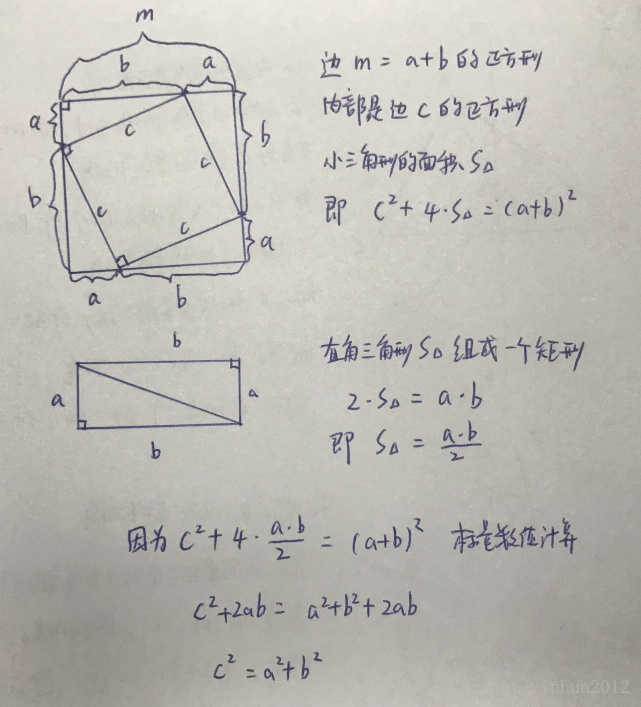 m
b a
a
c
c
b
b
c
c
a
a b
边 m = a+b 的正方形
内部是边 c 的正方形
小三角形的面积 S△
即 c²+ 4·S△ = (a+b)²
b
a
a
b
直角三角形 S△ 组成一个矩形
2·S△ = a·b
即 S△ = a·b/2
因为 c² + 4·a·b/2 = (a+b)² 标量数值计算
c²+2ab = a²+b²+2ab
c² = a²+b²